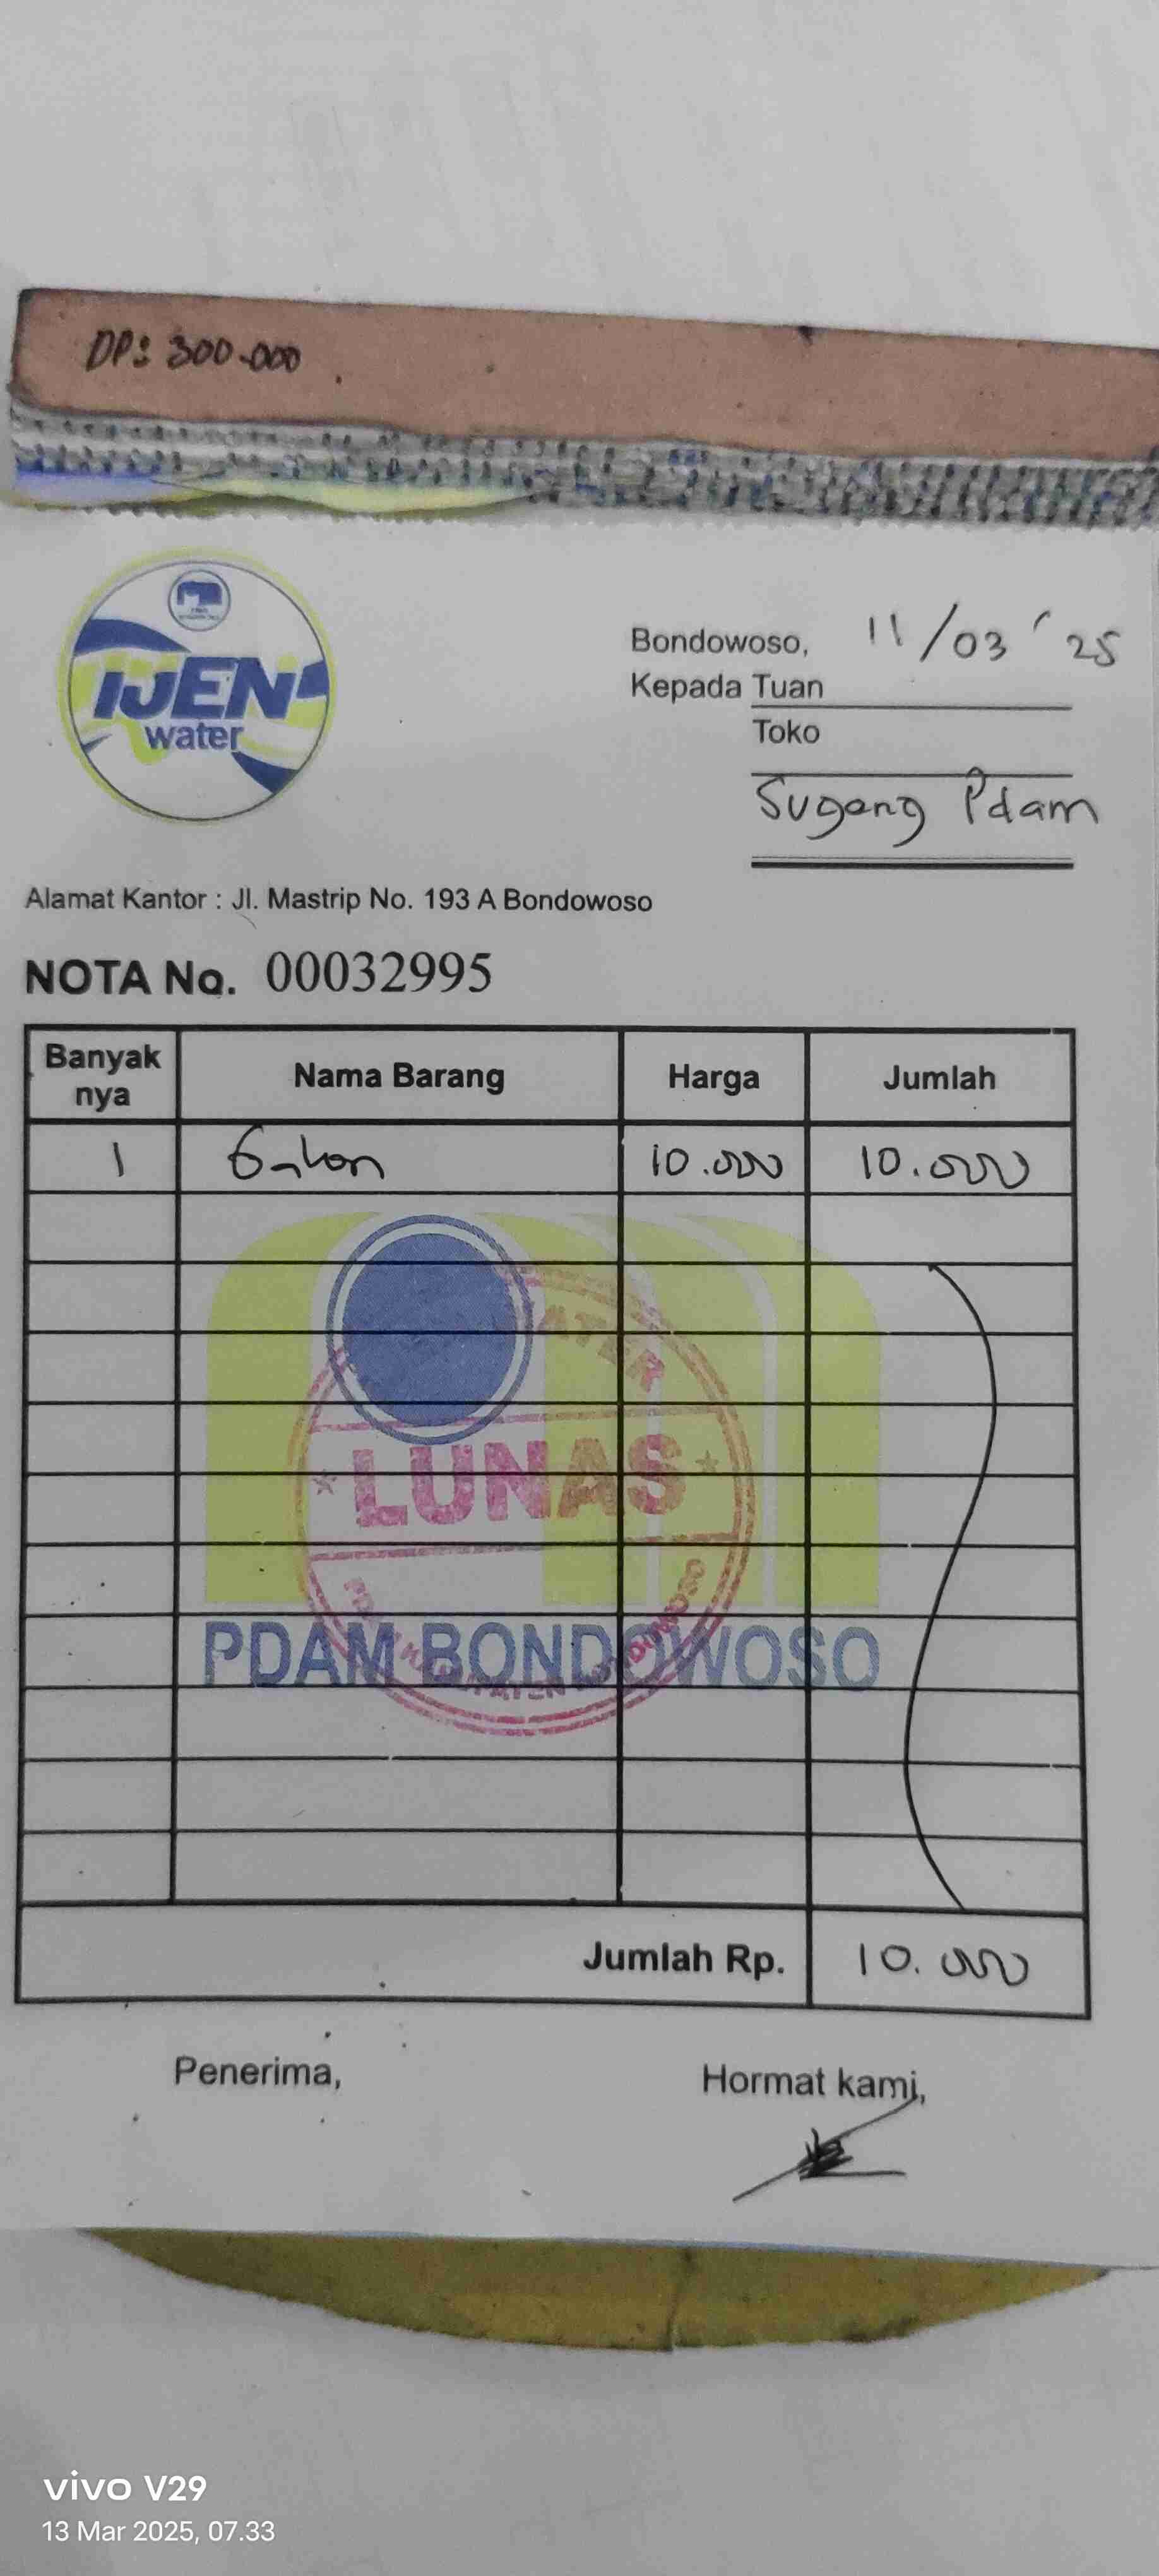 DP: 300.000
IJEN
water
Bondowoso, 11/03 '25
Kepada Tuan
Toko
Sugeng Pdam
Alamat Kantor : Jl. Mastrip No. 193 A Bondowoso
NOTA No. 00032995
Banyak nya Nama Barang Harga Jumlah
1 Galon 10.000 10.000
LUNAS
PDAM BONDOWOSO
Jumlah Rp. 10.000
Penerima, Hormat kami,
vivo V29
13 Mar 2025, 07.33